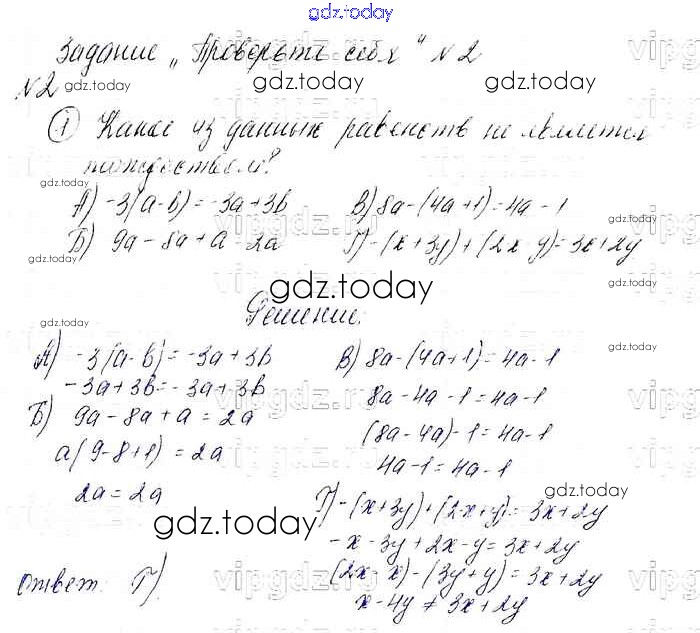 gdz.today
Задание „Проверьте себя" №2
№2 gdz.today gdz.today gdz.today
① Какое из данных равенств не является
тождеством?
gdz.today
А) -3(a-b)=-3a+3b В) 8a-(4a+1)=4a-1
gdz.today
Б) 9a-8a+a=2a Г) -(x+3y)+(2x y)=3x+2y
gdz.today gdz.today
gdz.today
Решение:
gdz.today gdz.today
А) -3(a-b)=-3a+3b
-3a+3b=-3a+3b
Б) 9a-8a+a=2a
a(9-8+1)=2a
2a=2a
В) 8a-(4a+1)=4a-1
8a-4a-1=4a-1
(8a-4a)-1=4a-1
4a-1=4a-1
gdz.today gdz.today
Г) -(x+3y)+(2x+y)=3x+2y
-x-3y+2x-y=3x+2y
(2x-x)-(3y+y)=3x+2y
x-4y≠3x+2y
Ответ: Г).